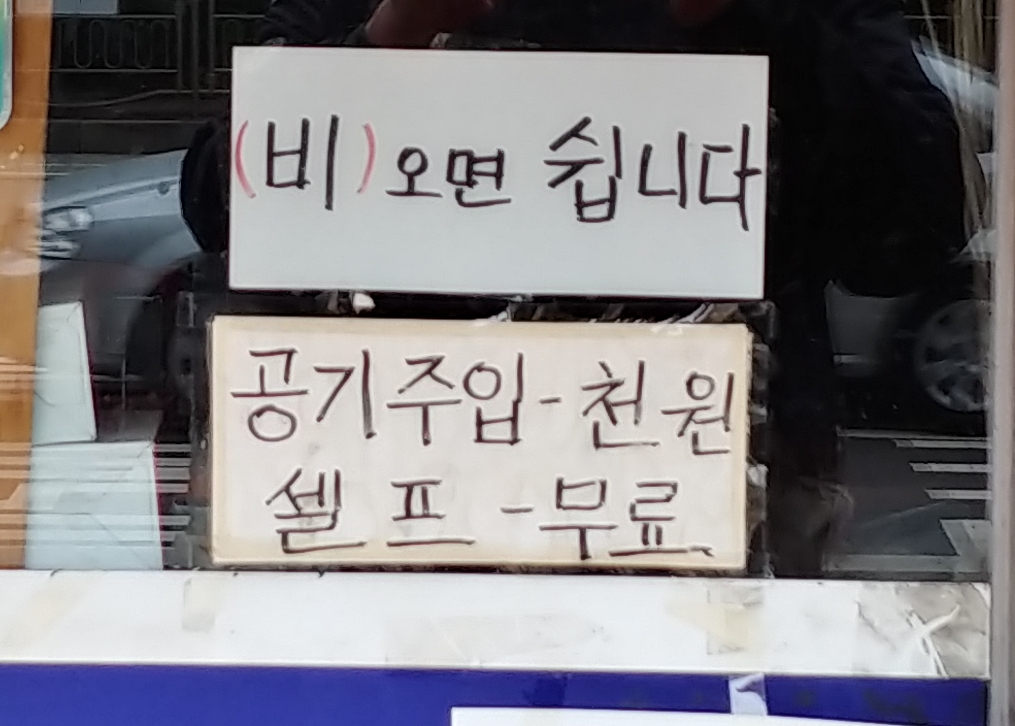 (비) 오면 쉽니다
공기주입-천원
셀프 -무료